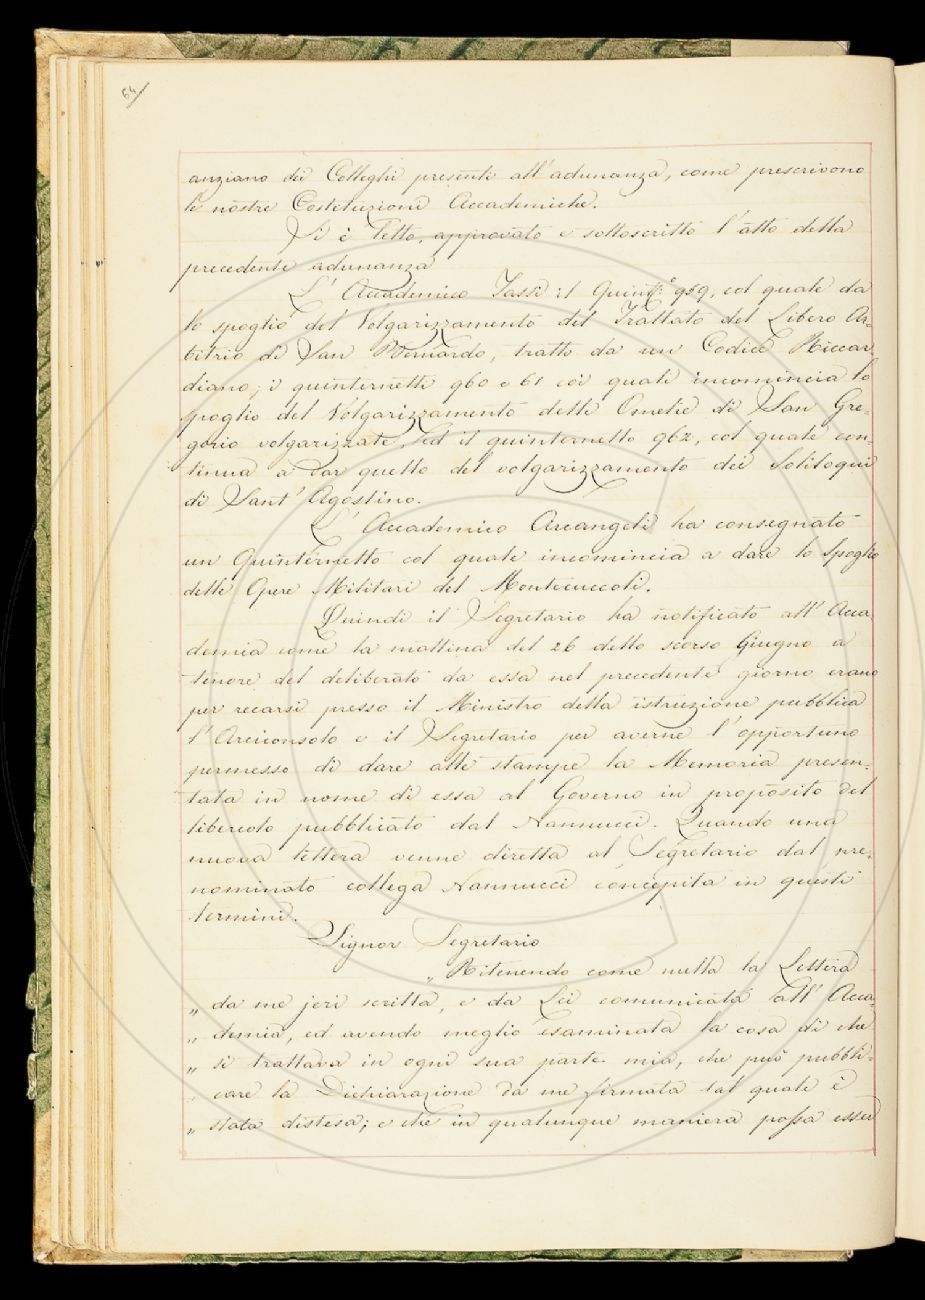 64
anziano dei Colleghi presenti all'adunanza, come prescrivono
le nostre Costituzioni Accademiche.
Si è letto, approvato e sottoscritto l'atto della
precedente adunanza
L'Accademico Tassi il Quint.° 959, col quale da
lo spoglio del Volgarizzamento del Trattato del Libero Ar-
bitrio di San Bernardo, tratto da un Codice Riccar-
diano; i quinternetti 960 e 61 coi quali incomincia lo
spoglio del Volgarizzamento delle Omelie di San Gre-
gorio volgarizzate, ed il quinternetto 962, col quale con-
tinua a dar quello del volgarizzamento dei Soliloqui
di Sant'Agostino.
L'Accademico Arcangeli ha consegnato
un Quinternetto col quale incomincia a dare lo Spoglio
delle Opere Militari del Montecuccoli.
Quindi il Segretario ha notificato all'Acca-
demia come la mattina del 26 dello scorso Giugno a
tenore del deliberato da essa nel precedente giorno erano
per recarsi presso il Ministro della istruzione pubblica
l'Arciconsolo e il Segretario per averne l'opportuno
permesso di dare alle stampe la Memoria presen-
tata in nome di essa al Governo in proposito del
libercolo pubblicato dal Nannucci. Quando una
nuova lettera venne diretta al Segretario dal pre-
nominato collega Nannucci concepita in questi
termini.
Signor Segretario
„ Ritenendo come nulla la Lettera
„ da me jeri scritta, e da Lei comunicata all'Acca-
„ demia, ed avendo meglio esaminata la cosa di che
„ si trattava in ogni sua parte mia, che può pubbli-
„ care la Dichiarazione da me firmata tal quale è
„ stata distesa; e che in qualunque maniera possa esser